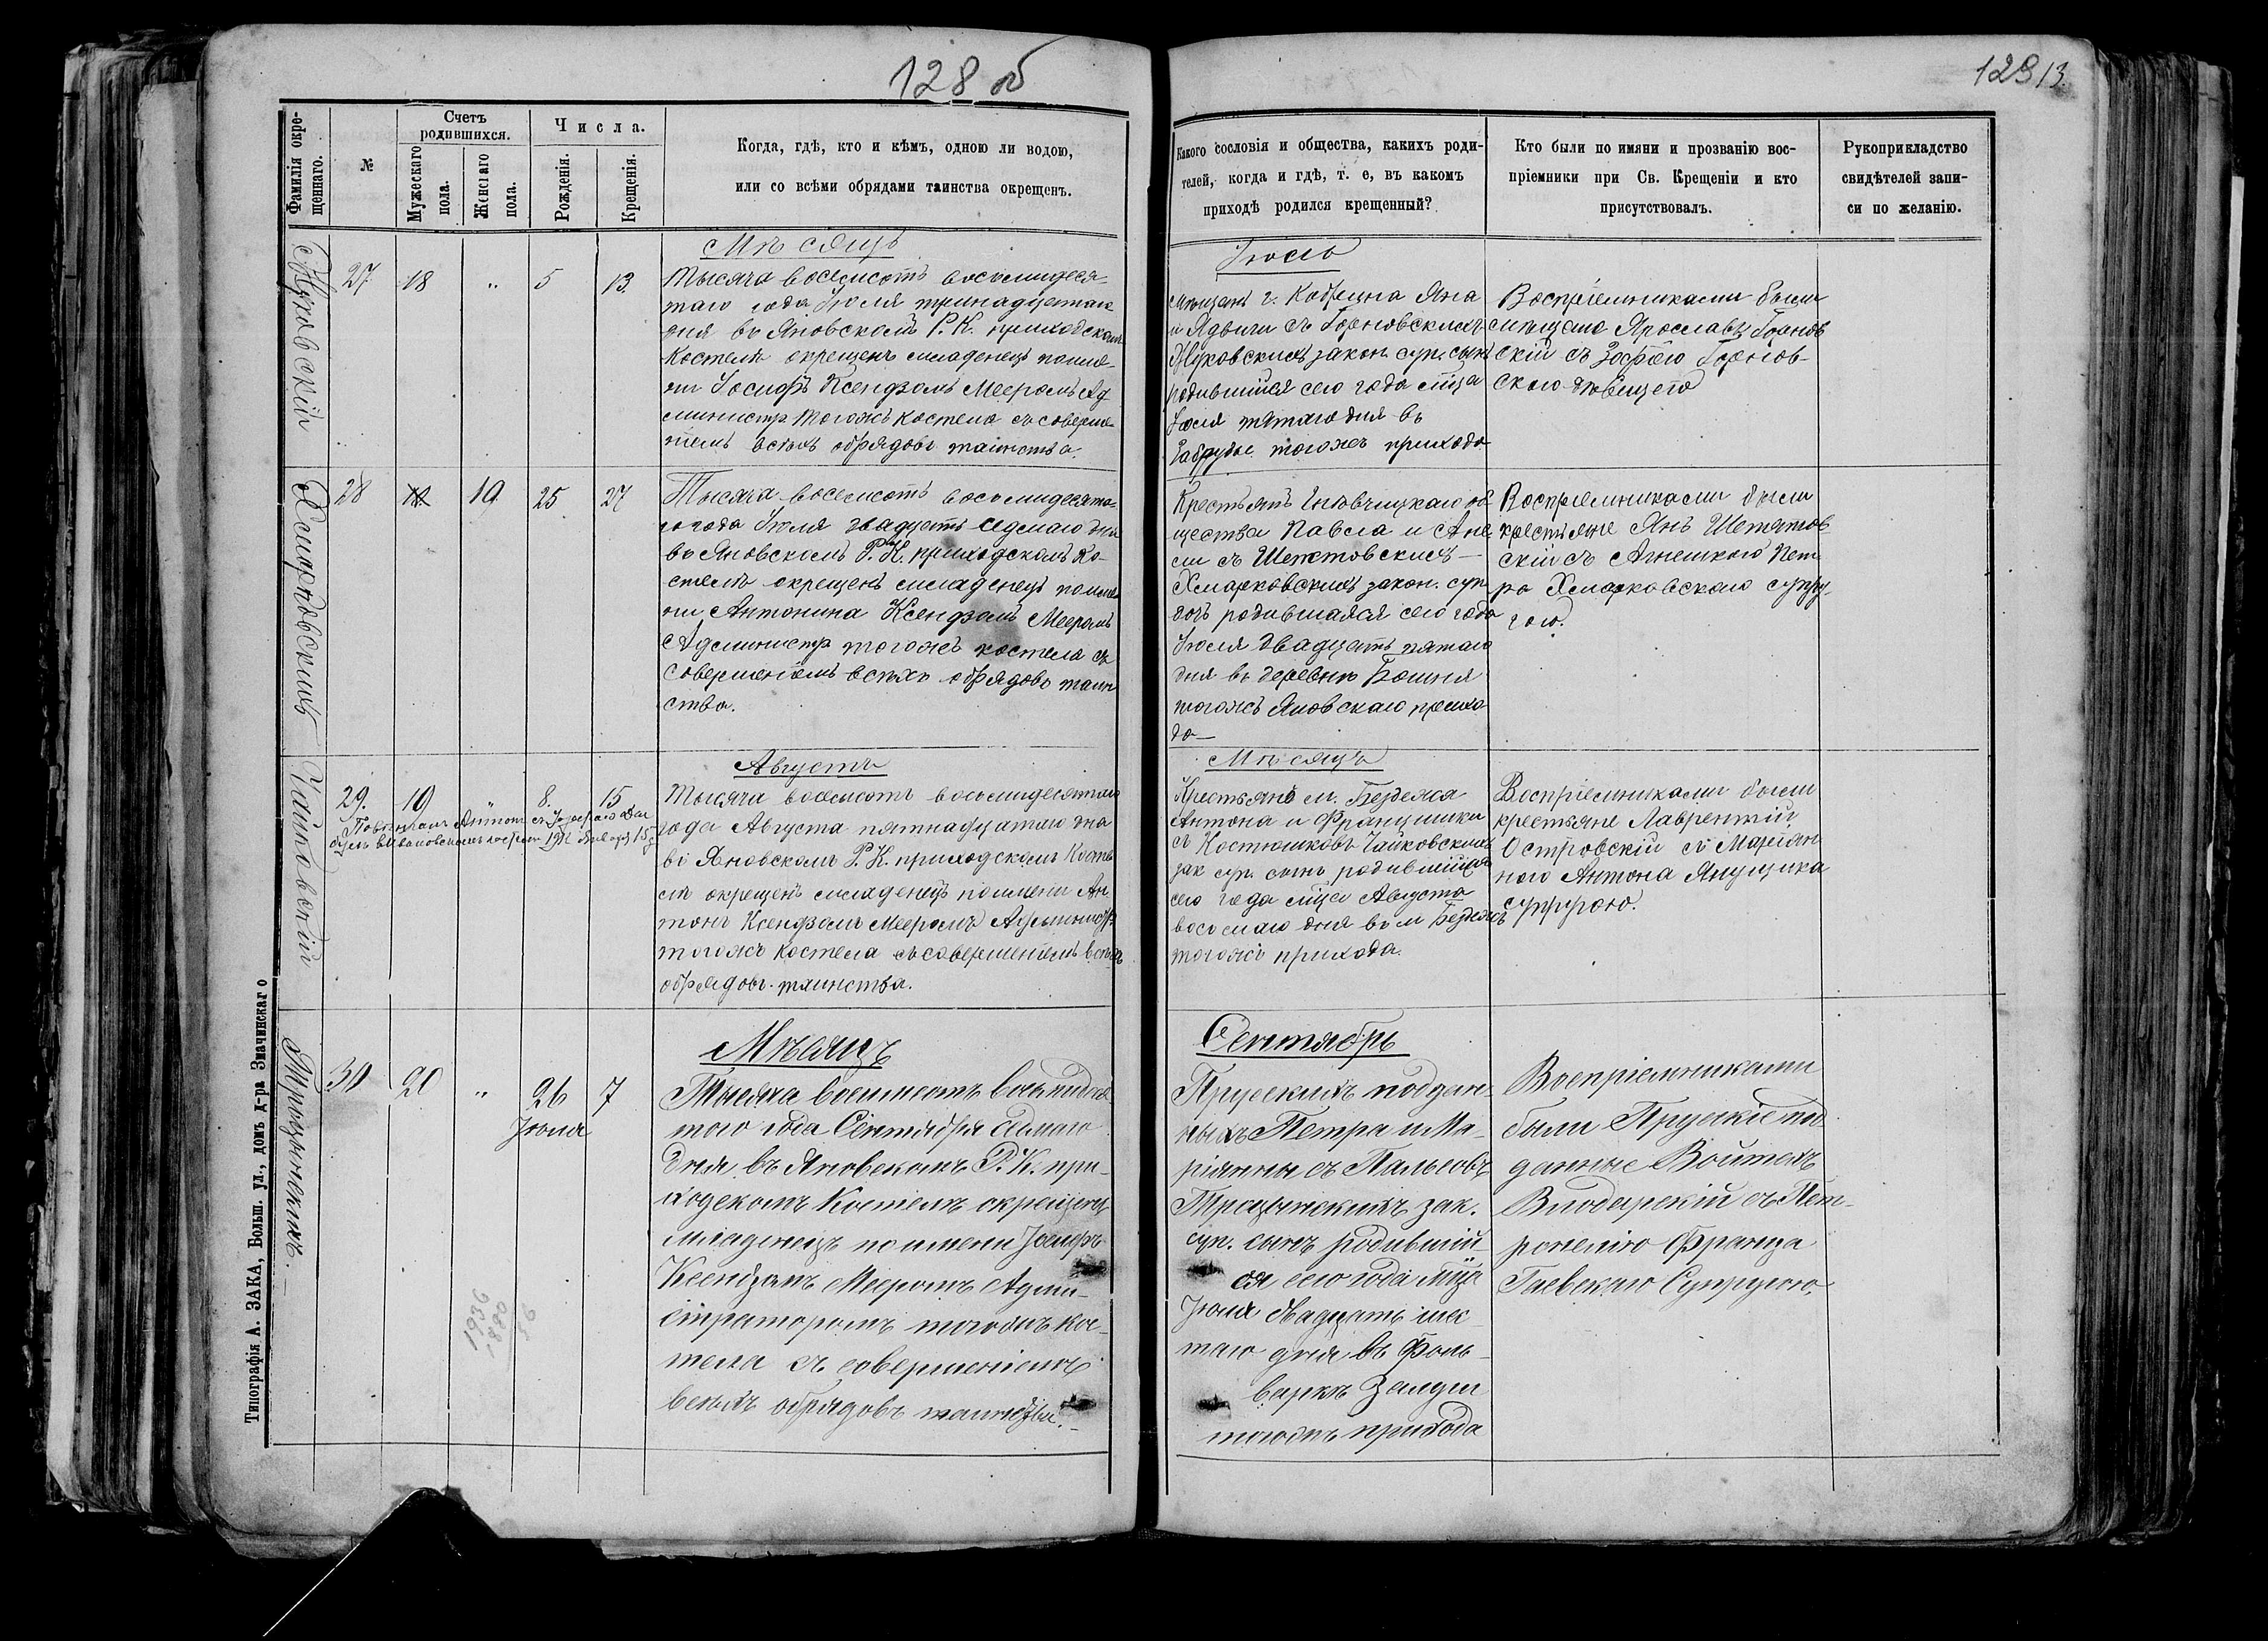 128 об
Фамилія окре-
щеннаго.
№
Счетъ
родившихся.
Мужескаго
пола.
Женскаго
пола.
Числа.
Рожденія.
Крещенія.
Когда, гдѣ, кто и кѣмъ, одною ли водою,
или со всѣми обрядами таинства окрещенъ.
Мѣсяцъ
27 18 " 5 13
Тысяча восемсотъ восьмидеся-
таго года Іюля тринадцатаго
дня въ Яновскомъ Р. К. приходскомъ
Костелѣ окрещенъ младенецъ по име-
ни Іосифъ Ксендзомъ Мееромъ Ад
министр. тогожъ костела съ соверше-
ніемъ всѣхъ обрядовъ таинства.
Хмарковскихъ
28 19 25 27
Тысяча восемсотъ восьмидесята-
го года Іюля двадцать седмаго дня
въ Яновскомъ Р. К. приходскомъ Ко-
стелѣ окрещенъ младенецъ по име
ни Антонина Ксендзомъ Мееромъ
Администр тогожъ костела съ
совершеніемъ всѣхъ обрядовъ таин
ства.
Чайковскій
Августъ
29. 19 " 8. 15
Тысяча восемсотъ восьмидесятаго
года Августа пятнадцатаго дня
въ Яновскомъ Р. К. приходскомъ Косте
лѣ окрещенъ младенецъ по имени Ан
тонъ Ксендзомъ Мееромъ Администр
тогожъ костела съ совершеніемъ всѣхъ
обрядовъ таинства.
Мѣсяцъ
30 20 " 26 7
Іюля
Тысяча восемсотъ восьмидеся-
таго года Сентября седьмаго
дня въ Яновскомъ Р. К. при-
ходскомъ Костелѣ окрещенъ
младенецъ по имени Іосифъ
Ксендзомъ Мееромъ Адми-
страторомъ тогожъ кос-
тела съ совершеніемъ
всѣхъ обрядовъ таинства.
1936
1880
56
Типографія А. ЗАКА, Больш. ул., домъ д-ра Значинскаго
129 13.
Какого сословія и общества, какихъ роди-
телей, когда и гдѣ, т. е, въ какомъ
приходѣ родился крещенный?
Кто были по имяни и прозванію вос-
пріемники при Св. Крещеніи и кто
присутствовалъ.
Рукоприкладство
свидѣтелей запи-
си по желанію.
Іюль
Мѣщанъ г. Кобрина Яна
и Ядвиги съ
закон. суп. сынъ
родившійся сего года мца
Іюля пятаго дня въ
тогожъ прихода
Воспріемниками были
мѣщане Ярославъ
скій съ Зофіею
скаго
Крестьянъ об
щества Павла и Ане
ли съ Шепетовскихъ
Хмарковскихъ закон. суп
дочь родившаяся сего года
Іюля двадцать пятаго
дня въ деревнѣ
тогожъ Яновскаго прихо
да
Воспріемниками были
крестьяне Янъ Шепетов
скій съ Агнешкою Пет
ра Хмарковскаго супру
гою.
Мѣсяцъ
Крестьянъ м. Бездежа
Антона и Францишки
съ Костюшковъ Чайковскихъ
зак суп. сынъ родившійся
сего года мца Августа
восьмаго дня въ м Бездежѣ
тогожъ прихода.
Воспріемниками были
крестьяне Лаврентій
Островскій съ Маріян
ною Антона Янущика
супругою.
Сентябрь
Прусскихъ поддан-
ныхъ Петра и Ма-
ріянны съ Пальсовъ
зак.
суп. сынъ родившій-
ся сего года мца
Іюля двадцать шес
таго дня въ Фоль-
варкѣ
тогожъ прихода
Воспріемниками
были Прускіе под
данные Войтехъ
Влодарскій съ Пет-
ронелію Франца
Гаевскаго Супругою.